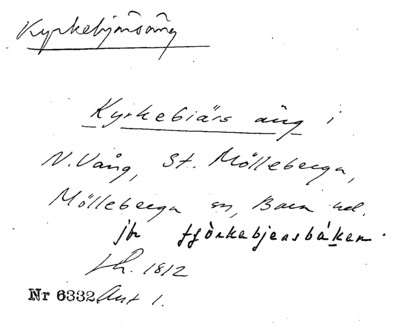 Kyrkebjärsäng
Kyrkebiärs äng i
N. Vång, St. Mölleberga,
Mölleberga sn, Bara hd.
jfr fjörkebjersbáken.
Lh. 1812
Nr 6332 Akt 1.